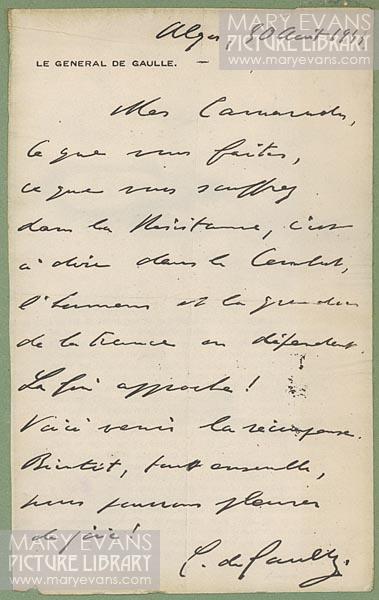 MARY EVANS
PICTURE LIBRARY
www.maryevans.com
Alger, Août
LE GENERAL DE GAULLE. —
Mes Camarades,
Ce que vous faites,
ce que vous souffrez
dans la Résistance, c'est
à dire dans le Combat,
l'honneur et la grandeur
de la France en dépendent.
La fin approche !
Voici venir la récompense.
Bientôt, tous ensemble,
nous pourrons pleurer
de joie !
C. de Gaulle.
MARY EVANS
PICTURE LIBRARY
www.maryevans.com
MARY EVANS
PICTURE LIBRARY
www.maryevans.com